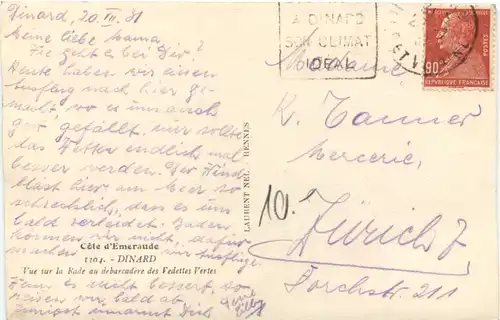 Dinard, 20. III. 31
Meine liebe Mama,
Wie geht es bei Dir?
Heute haben wir einen
Ausflug nach hier ge-
macht, wo es uns auch
gut gefällt, nur sollte
das Wetter endlich mal
besser werden. Der Wind
bläst hier am Meer so
schrecklich, dass es uns
bald verleidet. Baden
können wir nicht, dafür
machen wir Ausflüge.
Côte d'Emeraude
1104. - DINARD
Vue sur la Rade au débarcadère des Vedettes Vertes
Wenn es nicht bessert, so
reisen wir bald ab.
Innigst umarmt Dich
Deine
LAURENT NEL - RENNES
A DINARD
SON CLIMAT
IDEAL
90c
POSTES
REPUBLIQUE FRANÇAISE
Madame
K. Tanner
Mercerie,
10.
Zürich 7
Forchstr. 211